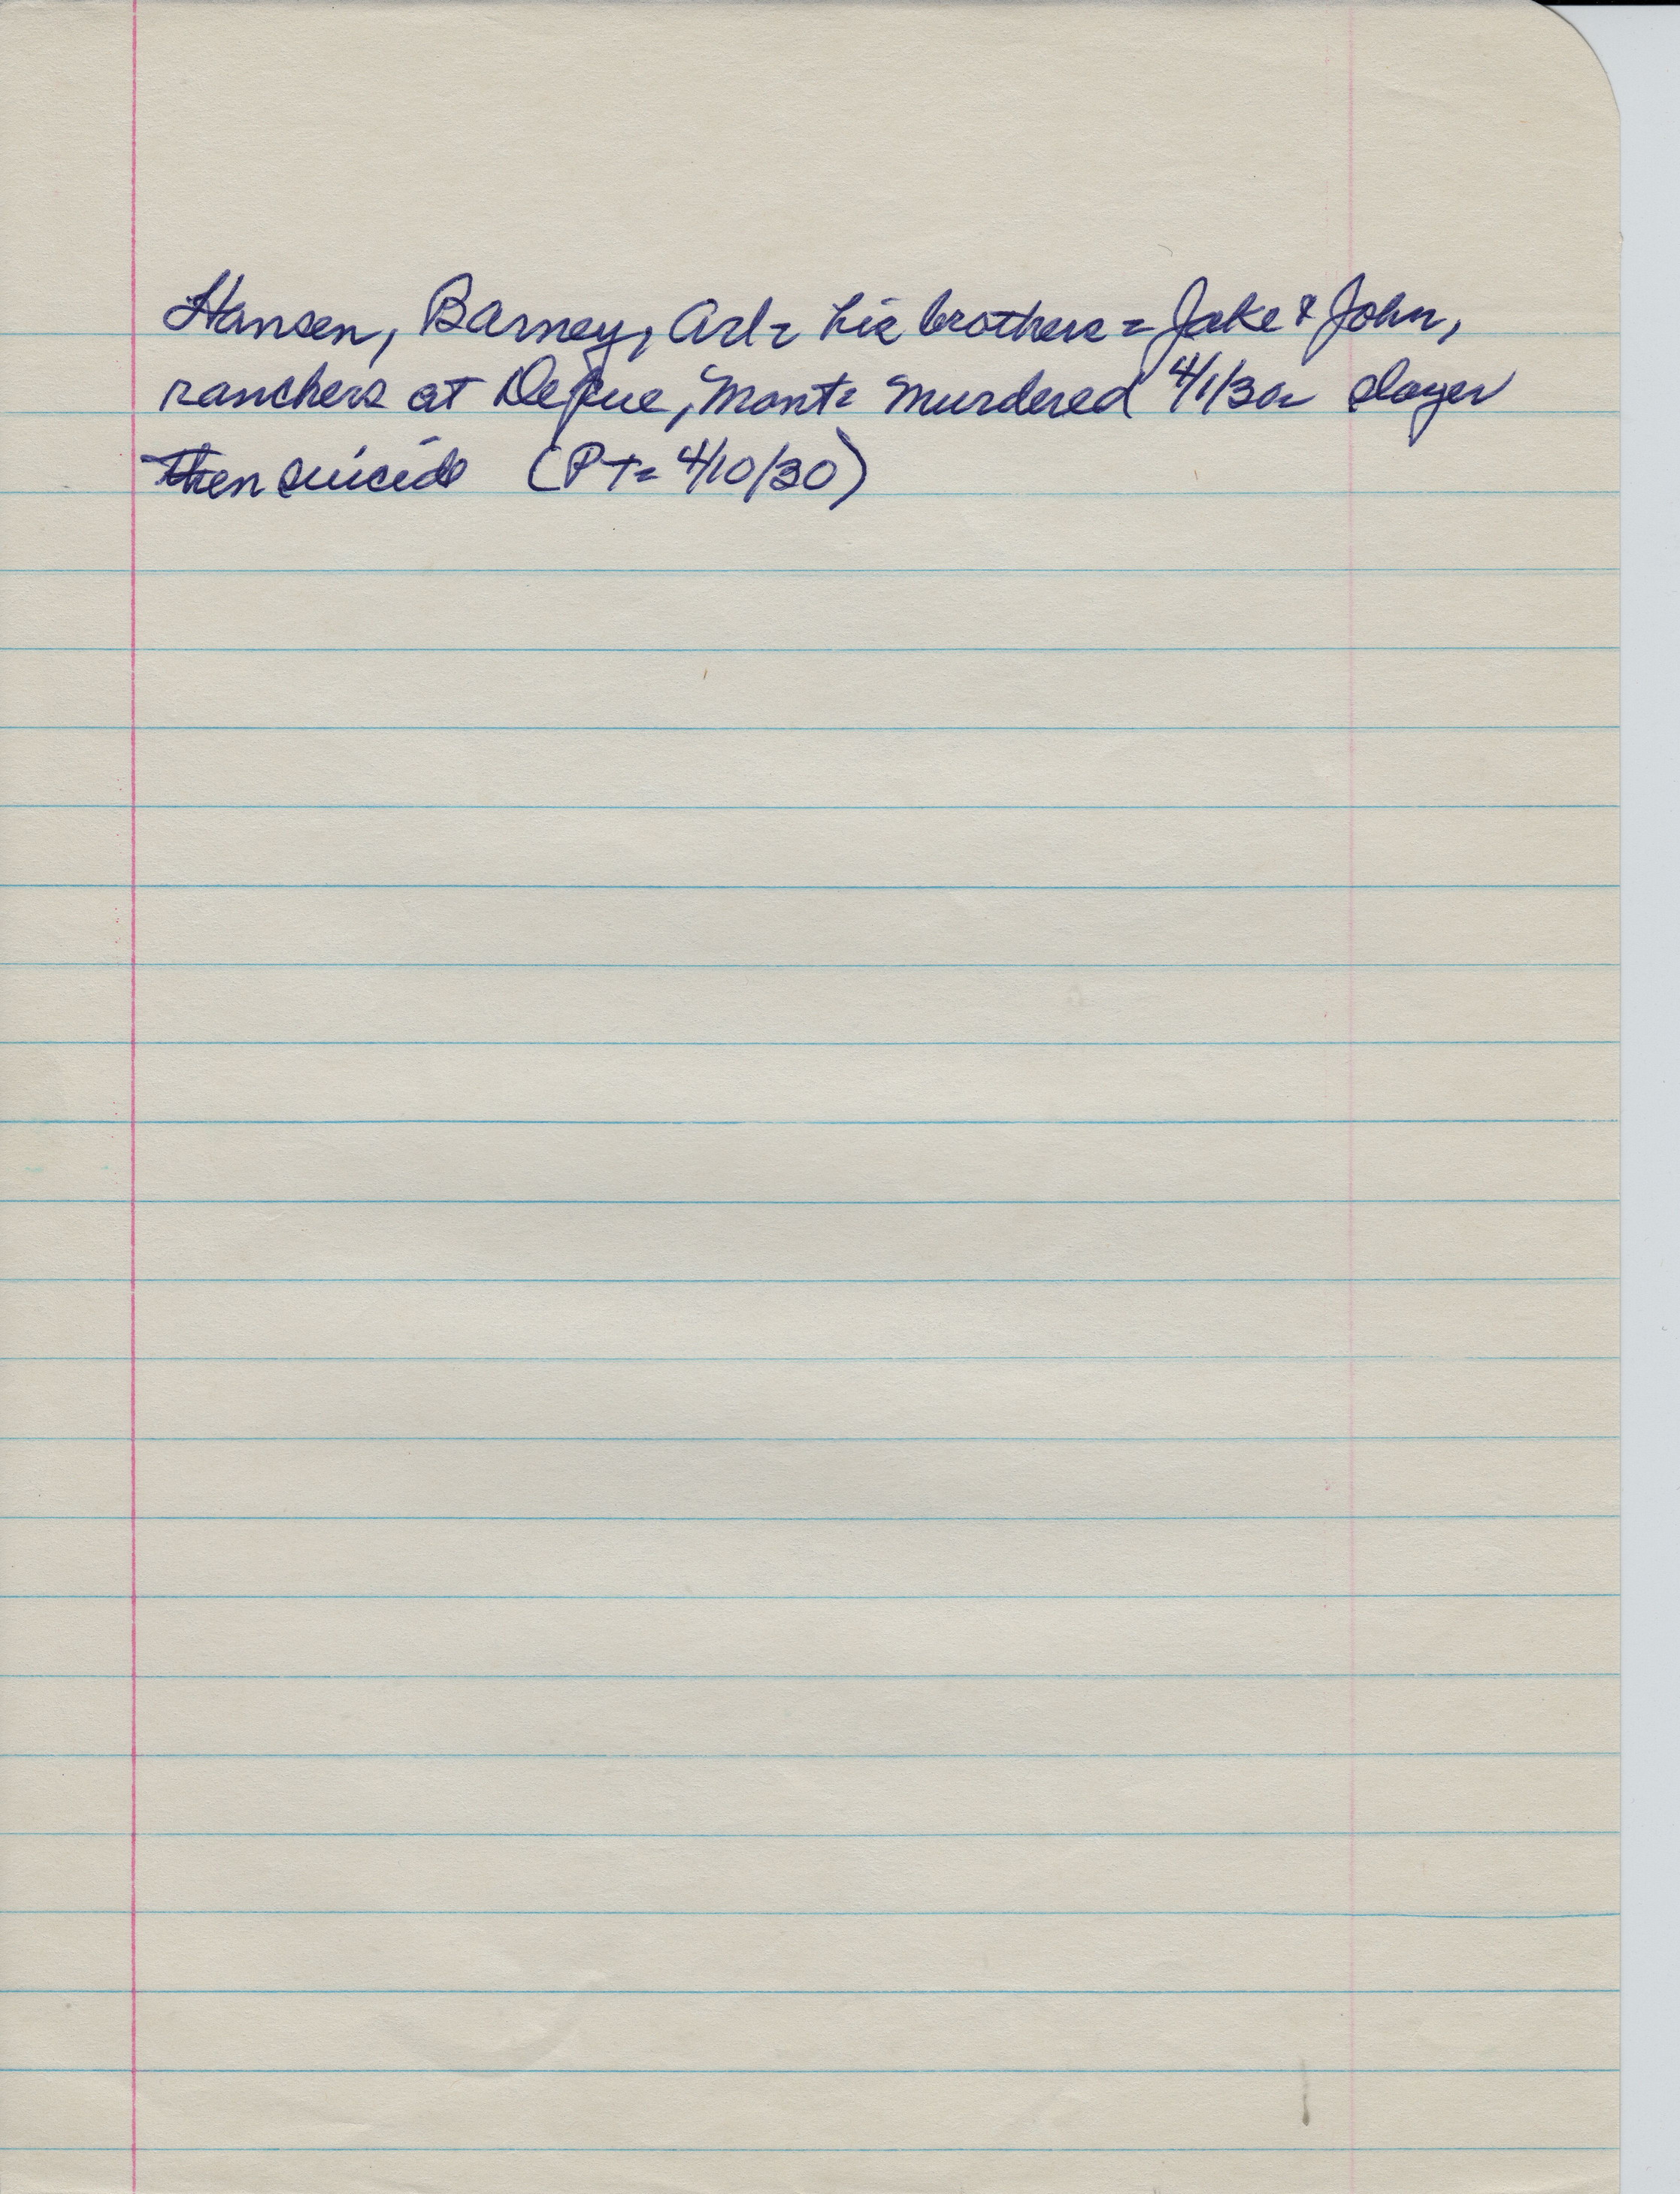 Hansen, Barney, Arl - his brothers - Jake & John,
ranchers at Depue, Mont - murdered 4/1/30 - slayer
then suicide (PT - 4/10/30)